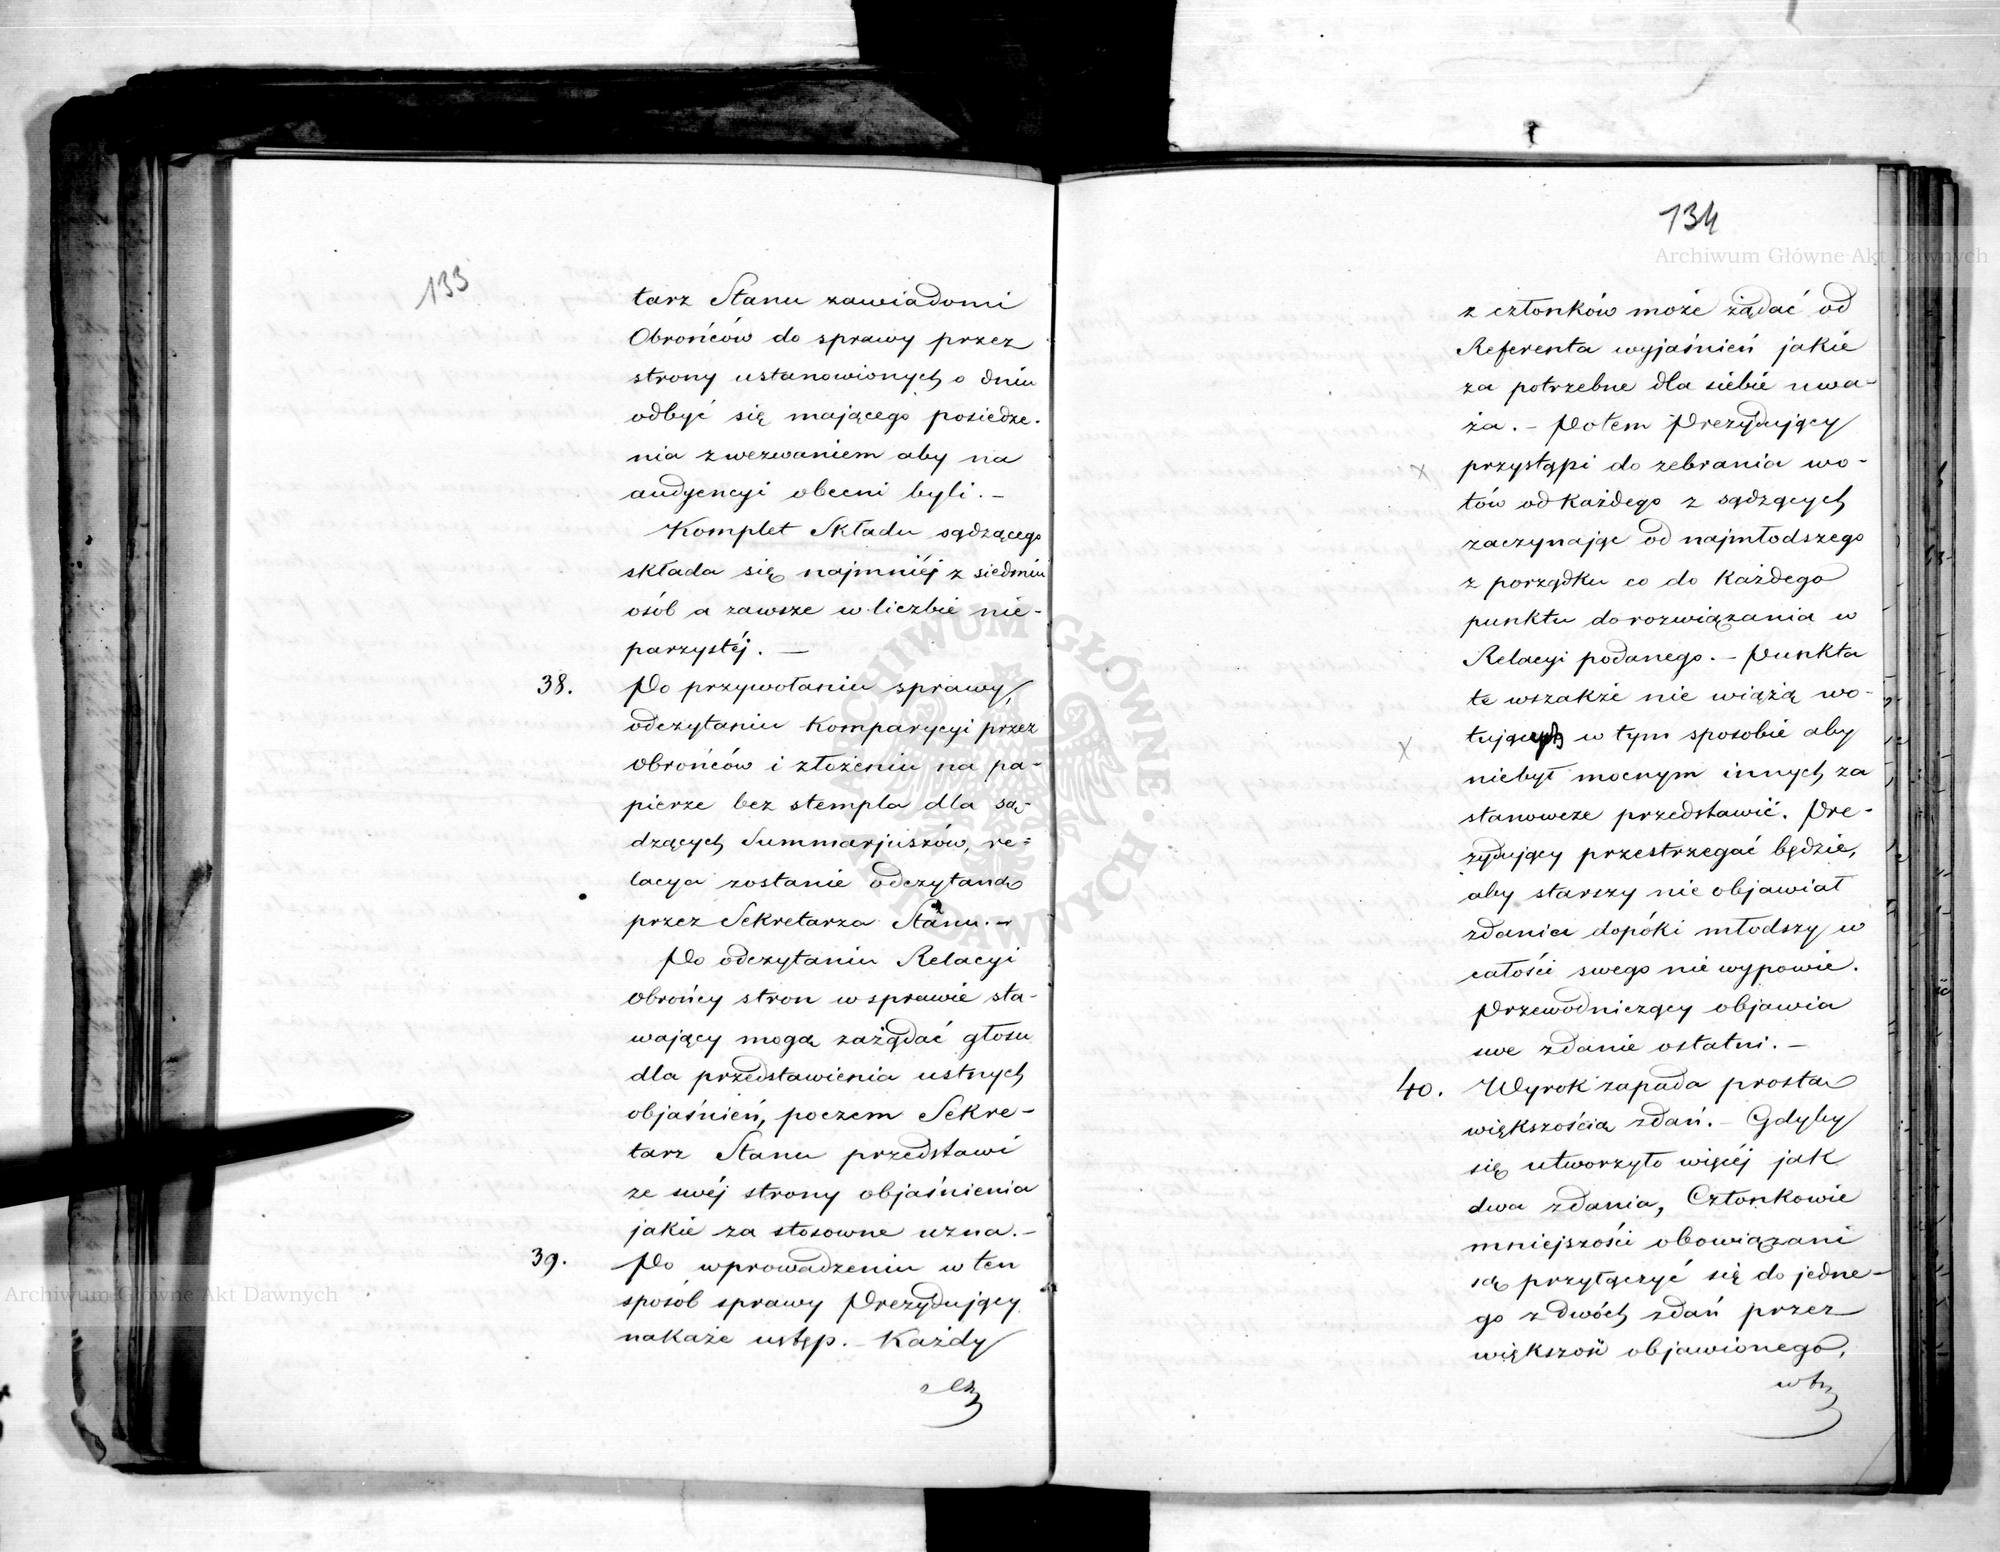 133
tarz Stanu zawiadomi
Obrońców do sprawy przez
strony ustanowionych o dniu
odbyć się mającego posiedze-
nia z wezwaniem aby na
audyencyi obecni byli. –
Komplet Składu sądzącego
składa się najmniéj z siedmiu
osób a zawsze w liczbie nie-
parzystéj. —
38. Po przywołaniu sprawy,
odczytaniu Komparycyi przez
obrońców i złożeniu na pa-
pierze bez stempla dla są-
dzących Summarjuszów, re=
lacya zostanie odczytana
przez Sekretarza Stanu. –
Po odczytaniu Relacyi
obrońcy stron w sprawie sta-
wający mogą zażądać głosu
dla przedstawienia ustnych
objaśnień, poczem Sekre-
tarz Stanu przedstawi
ze swéj strony objaśnienia
jakie za stosowne uzna. –
39. Po wprowadzeniu w ten
sposób sprawy Prezydujący
nakaże ustęp. – Każdy
z
134
z członków może żądać od
Referenta wyjaśnień jakie
za potrzebne dla siebie uwa-
ża. – Potem Prezydujący
x przystąpi do zebrania wo-
tów od każdego z sądzących
zaczynając od najmłodszego
z porządku co do każdego
punktu do rozwiązania w
Relacyi podanego. – Punkta
te wszakże nie wiążą wo-
x tujących w tym sposobie aby
niebył mocnym innych za
stanowcze przedstawić. Pre-
zydujący przestrzegać będzie,
aby starszy nie objawiał
zdania dopóki młodszy w
całości swego nie wypowie.
Przewodniczący objawia
swe zdanie ostatni. –
40. Wyrok zapada prostą
większością zdań. – Gdyby
się utworzyło więcéj jak
dwa zdania, Członkowie
mniejszości obowiązani
są przyłączyć się do jedne-
go z dwóch zdań przez
większość objawionego,
Archiwum Główne Akt Dawnych
Archiwum Główne Akt Dawnych
ARCHIWUM GŁÓWNE AKT DAWNYCH